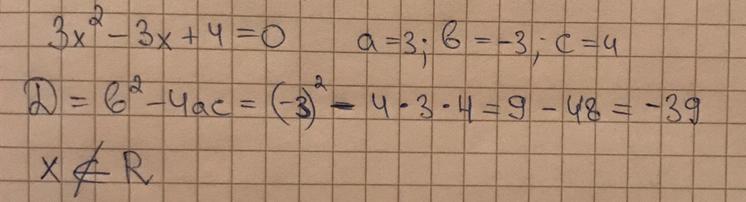 3x² - 3x + 4 = 0 a = 3; в = -3; c = 4
D = в² - 4ac = (-3)² - 4·3·4 = 9 - 48 = -39
x ⊄ R